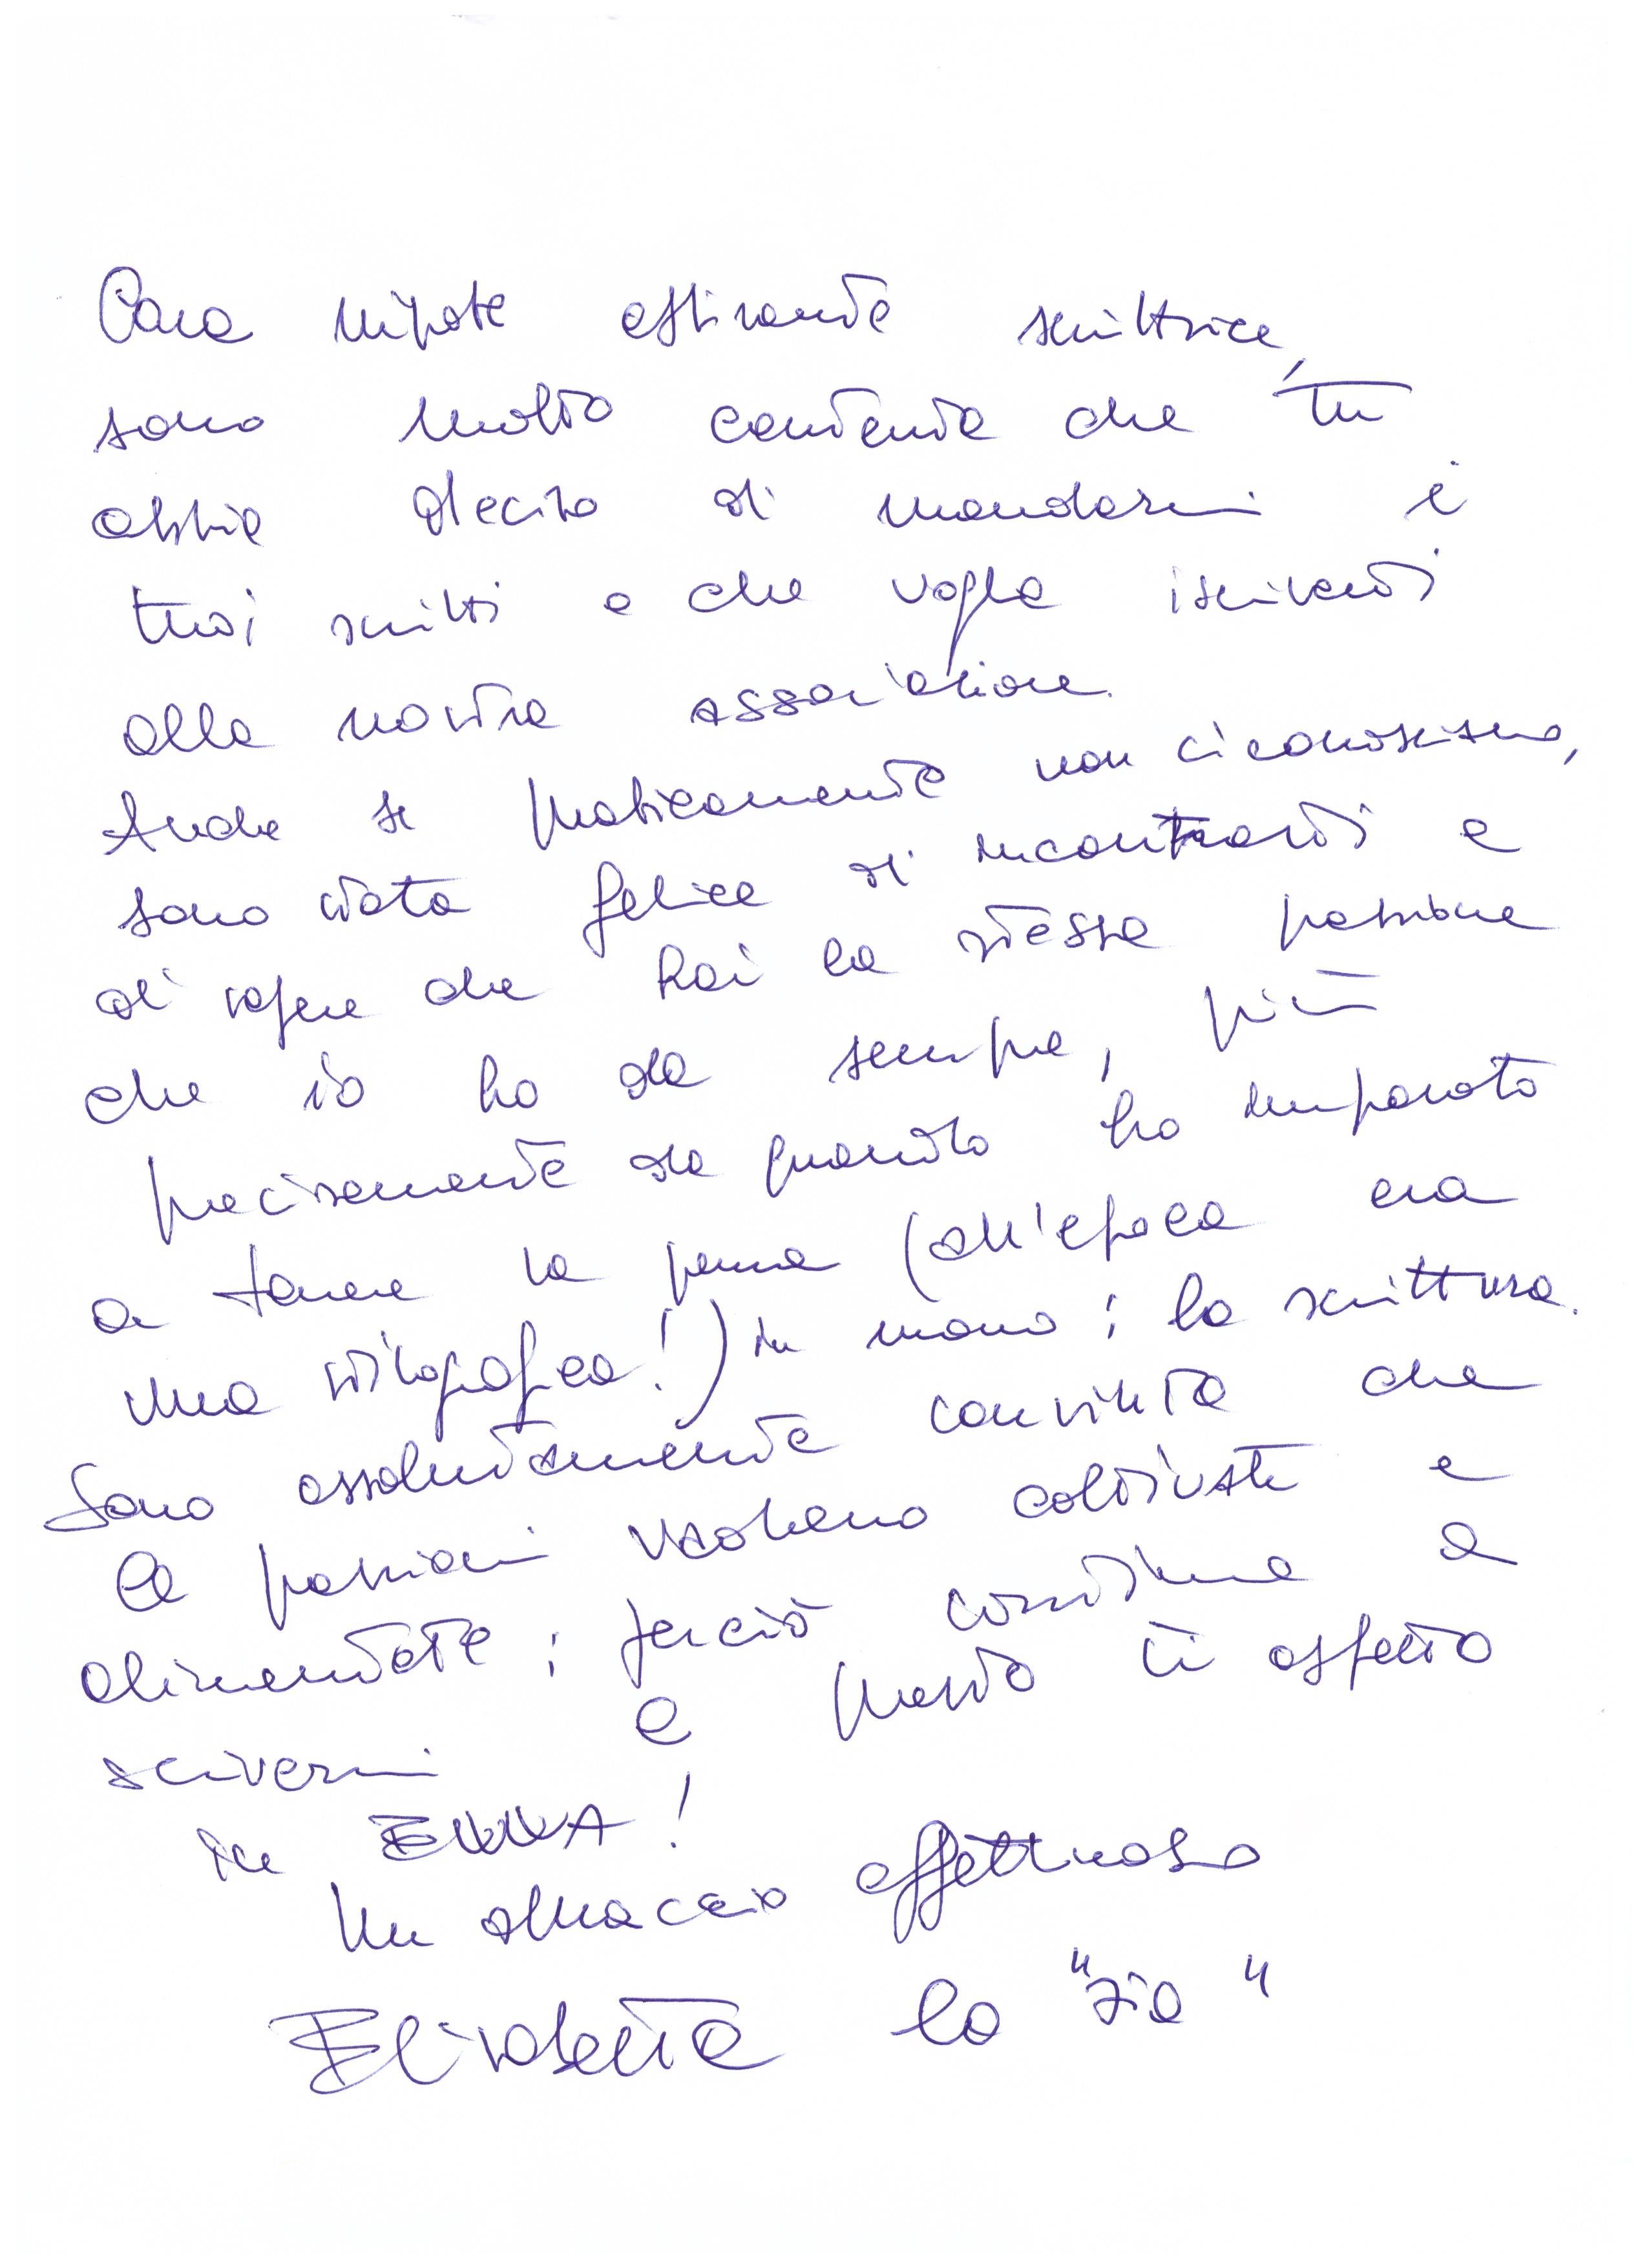 Cara nipote aspirante scrittrice,
sono molto contenta che tu
abbia deciso di mandarmi i
tuoi scritti e che voglia iscriverti
alla nostra associazione.
Anche se praticamente non ci conosciamo,
sono stata felice di incontrarti e
di sapere che hai la stessa passione
che io ho da sempre, più
precisamente da quando ho imparato
a tenere la penna (all'epoca era
una stilografica!) in mano: la scrittura.
Sono assolutamente convinta che
le passioni vadano coltivate e
alimentate; perciò continua a
scrivermi e presto ti aspetto
in EKKA!
Un abbraccio affettuoso
Elisabetta la "zia"